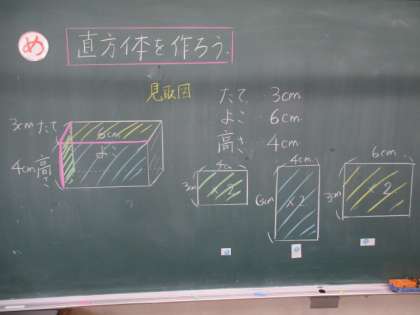 め 直方体を作ろう.
見取図
たて 3cm
よこ 6cm
高さ 4cm
3cm たて
6cm
よこ
4cm 高さ
4cm
3cm ×2
4cm
6cm ×2
6cm
3cm ×2